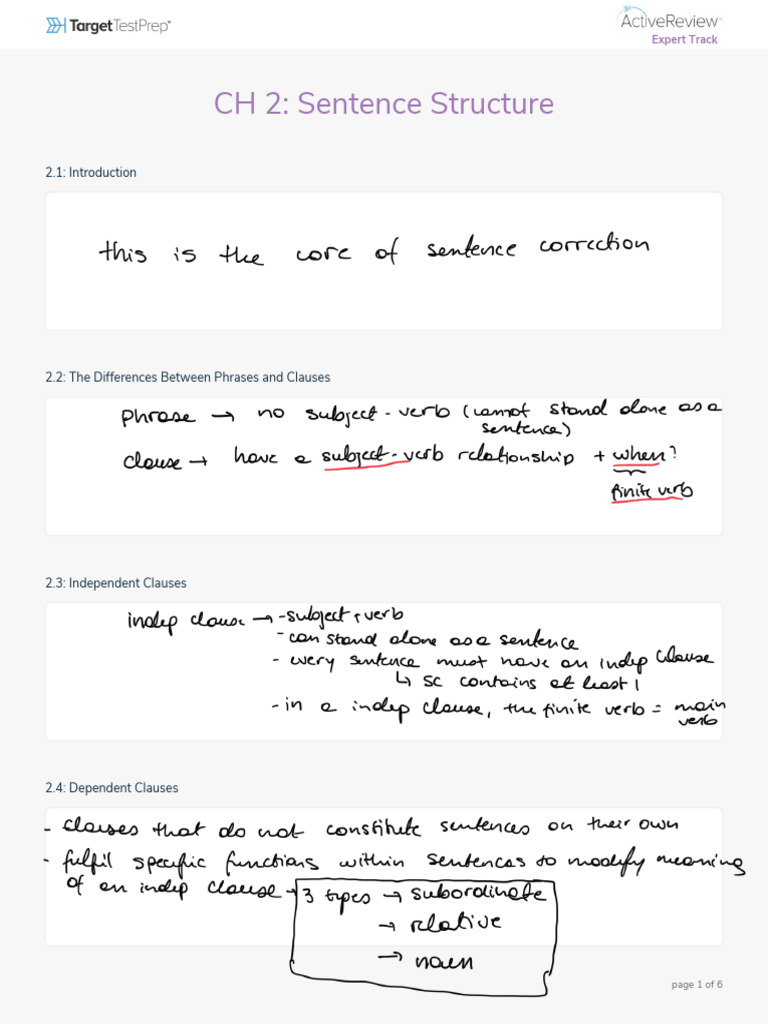 TargetTestPrep
ActiveReview
Expert Track
CH 2: Sentence Structure
2.1: Introduction
this is the core of sentence correction
2.2: The Differences Between Phrases and Clauses
Phrase → no subject-verb (cannot stand alone as a
sentence)
clause → have a subject-verb relationship + when?
finite verb
2.3: Independent Clauses
indep clause → -subject + verb
- can stand alone as a sentence
- every sentence must have an indep clause
↳ SC contains at least 1
- in a indep clause, the finite verb = main
verb
2.4: Dependent Clauses
- clauses that do not constitute sentences on their own
- fulfil specific functions within sentences to modify meaning
of an indep clause → 3 types → subordinate
→ relative
→ noun
page 1 of 6